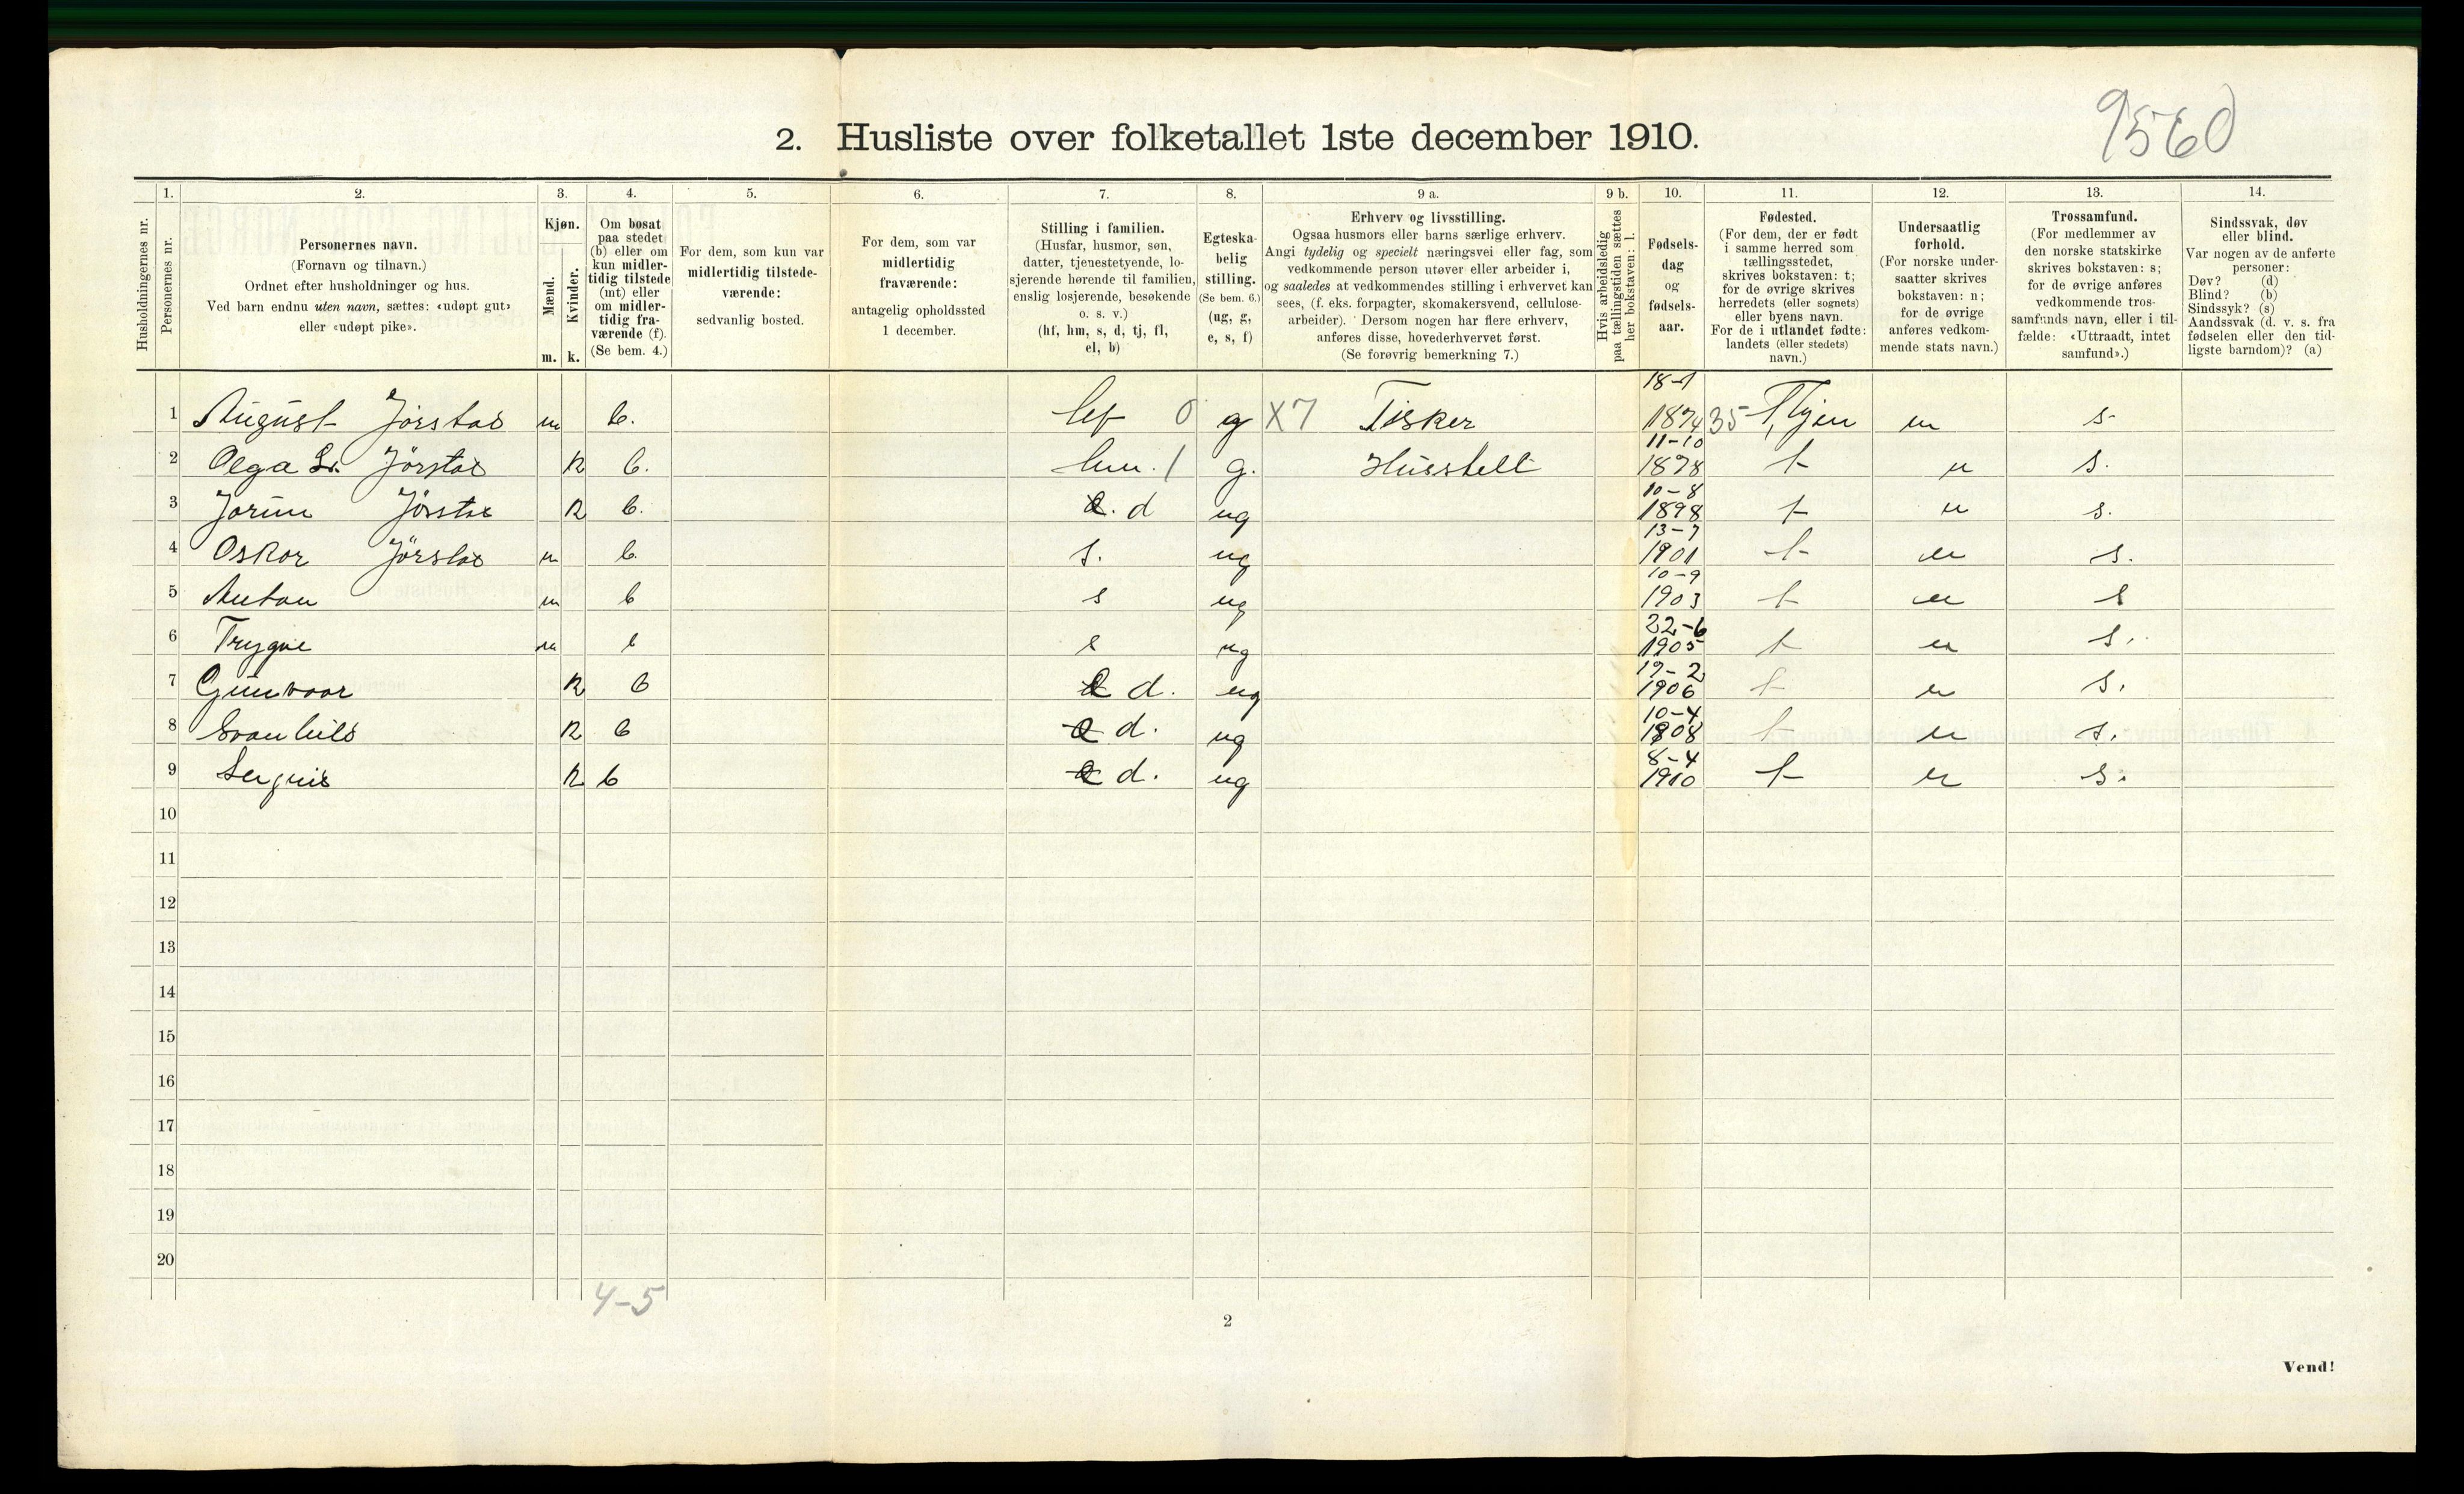 9560
2. Husliste over folketallet 1ste december 1910.
1. 2. 3. 4. 5. 6. 7. 8. 9 a. 9 b. 10. 11. 12. 13. 14.
Husholdningernes nr.
Personernes nr.
Personernes navn.
(Fornavn og tilnavn.)
Ordnet efter husholdninger og hus.
Ved barn endnu uten navn, sættes: «udøpt gut»
eller «udøpt pike».
Kjøn.
Mænd.
Kvinder.
m. k.
Om bosat
paa stedet
(b) eller om
kun midler-
tidig tilstede
(mt) eller
om midler-
tidig fra-
værende (f).
(Se bem. 4.)
For dem, som kun var
midlertidig tilstede-
værende:
sedvanlig bosted.
For dem, som var
midlertidig
fraværende:
antagelig opholdssted
1 december.
Stilling i familien.
(Husfar, husmor, søn,
datter, tjenestetyende, lo-
sjerende hørende til familien,
enslig losjerende, besøkende
o. s. v.)
(hf, hm, s, d, tj, fl,
el, b)
Egteska-
belig
stilling.
(Se bem. 6.)
(ug, g,
e, s, f)
Erhverv og livsstilling.
Ogsaa husmors eller barns særlige erhverv.
Angi tydelig og specielt næringsvei eller fag, som
vedkommende person utøver eller arbeider i,
og saaledes at vedkommendes stilling i erhvervet kan
sees, (f. eks. forpagter, skomakersvend, cellulose-
arbeider). Dersom nogen har flere erhverv,
anføres disse, hovederhvervet først.
(Se forøvrig bemerkning 7.)
Hvis arbeidsledig
paa tællingstiden sættes
her bokstaven: l.
Fødsels-
dag
og
fødsels-
aar.
Fødested.
(For dem, der er født
i samme herred som
tællingsstedet,
skrives bokstaven: t;
for de øvrige skrives
herredets (eller sognets)
eller byens navn.
For de i utlandet fødte:
landets (eller stedets)
navn.)
Undersaatlig
forhold.
(For norske under-
saatter skrives
bokstaven: n;
for de øvrige
anføres vedkom-
mende stats navn.)
Trossamfund.
(For medlemmer av
den norske statskirke
skrives bokstaven: s;
for de øvrige anføres
vedkommende tros-
samfunds navn, eller i til-
fælde: «Uttraadt, intet
samfund».)
Sindssvak, døv
eller blind.
Var nogen av de anførte
personer:
Døv? (d)
Blind? (b)
Sindssyk? (s)
Aandssvak (d. v. s. fra
fødselen eller den tid-
ligste barndom)? (a)
1 August Jörstad m b. hf 0 g X7 Fisker 18-1 1874 35 n s
2 Olga Jörstad k b. hm. 1 g. Husstell 11-10 1878 t n s.
3 Jorun Jörstad k b. d ug 10-8 1898 t n s.
4 Oskar Jörstad m b s. ug 13-7 1901 t n s.
5 Anton m b s ug 10-9 1903 t n s
6 Trygve m b s ug 22-6 1905 t n s.
7 Gunvoor k b d. ug 19-2 1906 t n s.
8 Svanhild k b d. ug 10-4 1908 t n s.
9 k b d. ug 8-4 1910 t n s.
10
11
12
13
14
15
16
17
18
19
20
4-5
2
Vend!